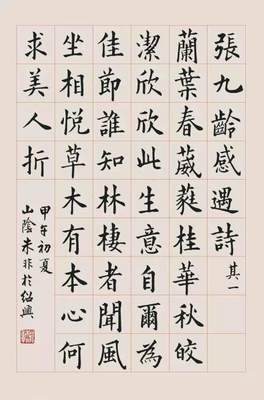 張九齡感遇詩其一
蘭葉春葳蕤桂華秋皎
潔欣欣此生意自爾為
佳節誰知林棲者聞風
坐相悅草木有本心何
求美人折
甲午初夏
山陰非於紹興